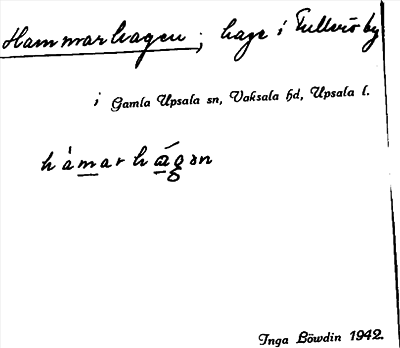 Hammarhagen; hage i Fullerö by
i Gamla Upsala sn, Vaksala hd, Upsala l.
hàmarhágən
Inga Löwdin 1942.